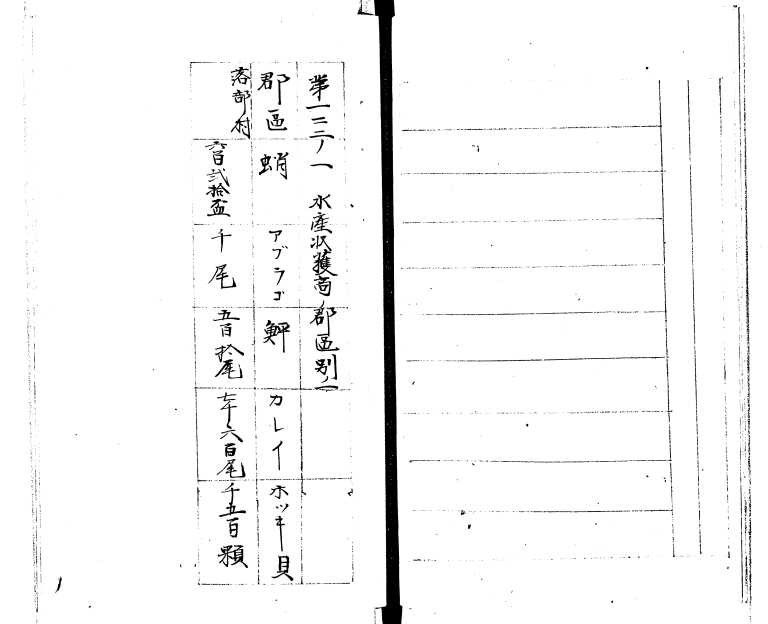 第一二三ノ一 水産収獲高郡区別ノ一
郡區 蛸 アブラゴ 鮃 カレイ ホッキ貝
落部村 六百弐拾盃 千尾 五百拾尾 七千六百尾 千五百顆